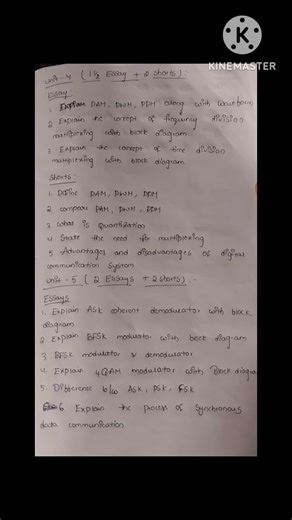 Made with
KINEMASTER
Unit - 4 ( 1½ Essay + 2 shorts) :
Essay
1. Explain PAM, PWM, PPM along with waveforms
2 Explain the concept of frequency division
multiplexing with block diagram.
3. Explain the concept of time division
multiplexing with block diagram.
Shorts :
1. Define PAM, PWM, PPM
2. compare PAM, PWM, PPM
3 what is Quantization
4 State the need for multiplexing
5 Advantages and disadvantages of digital
communication system
Unit - 5 ( 2 Essays + 2 shorts) :-
Essays
1. Explain ASK coherent demodulator with block
diagram
2 Explain BFSK modulator with block diagram
3. BPSK modulator & demodulator
4. Explain 4QAM modulator with Block diagram
5. Difference b/w ASK, PSK, FSK
6 Explain the process of Synchronous
data communication